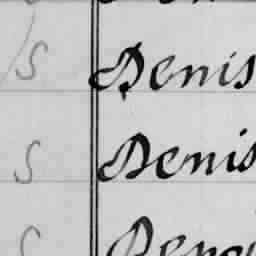 S Denis
S Denis
S